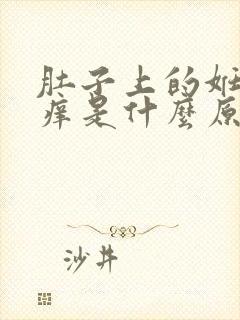 肚子上的妊
痒是什麼原
沙井